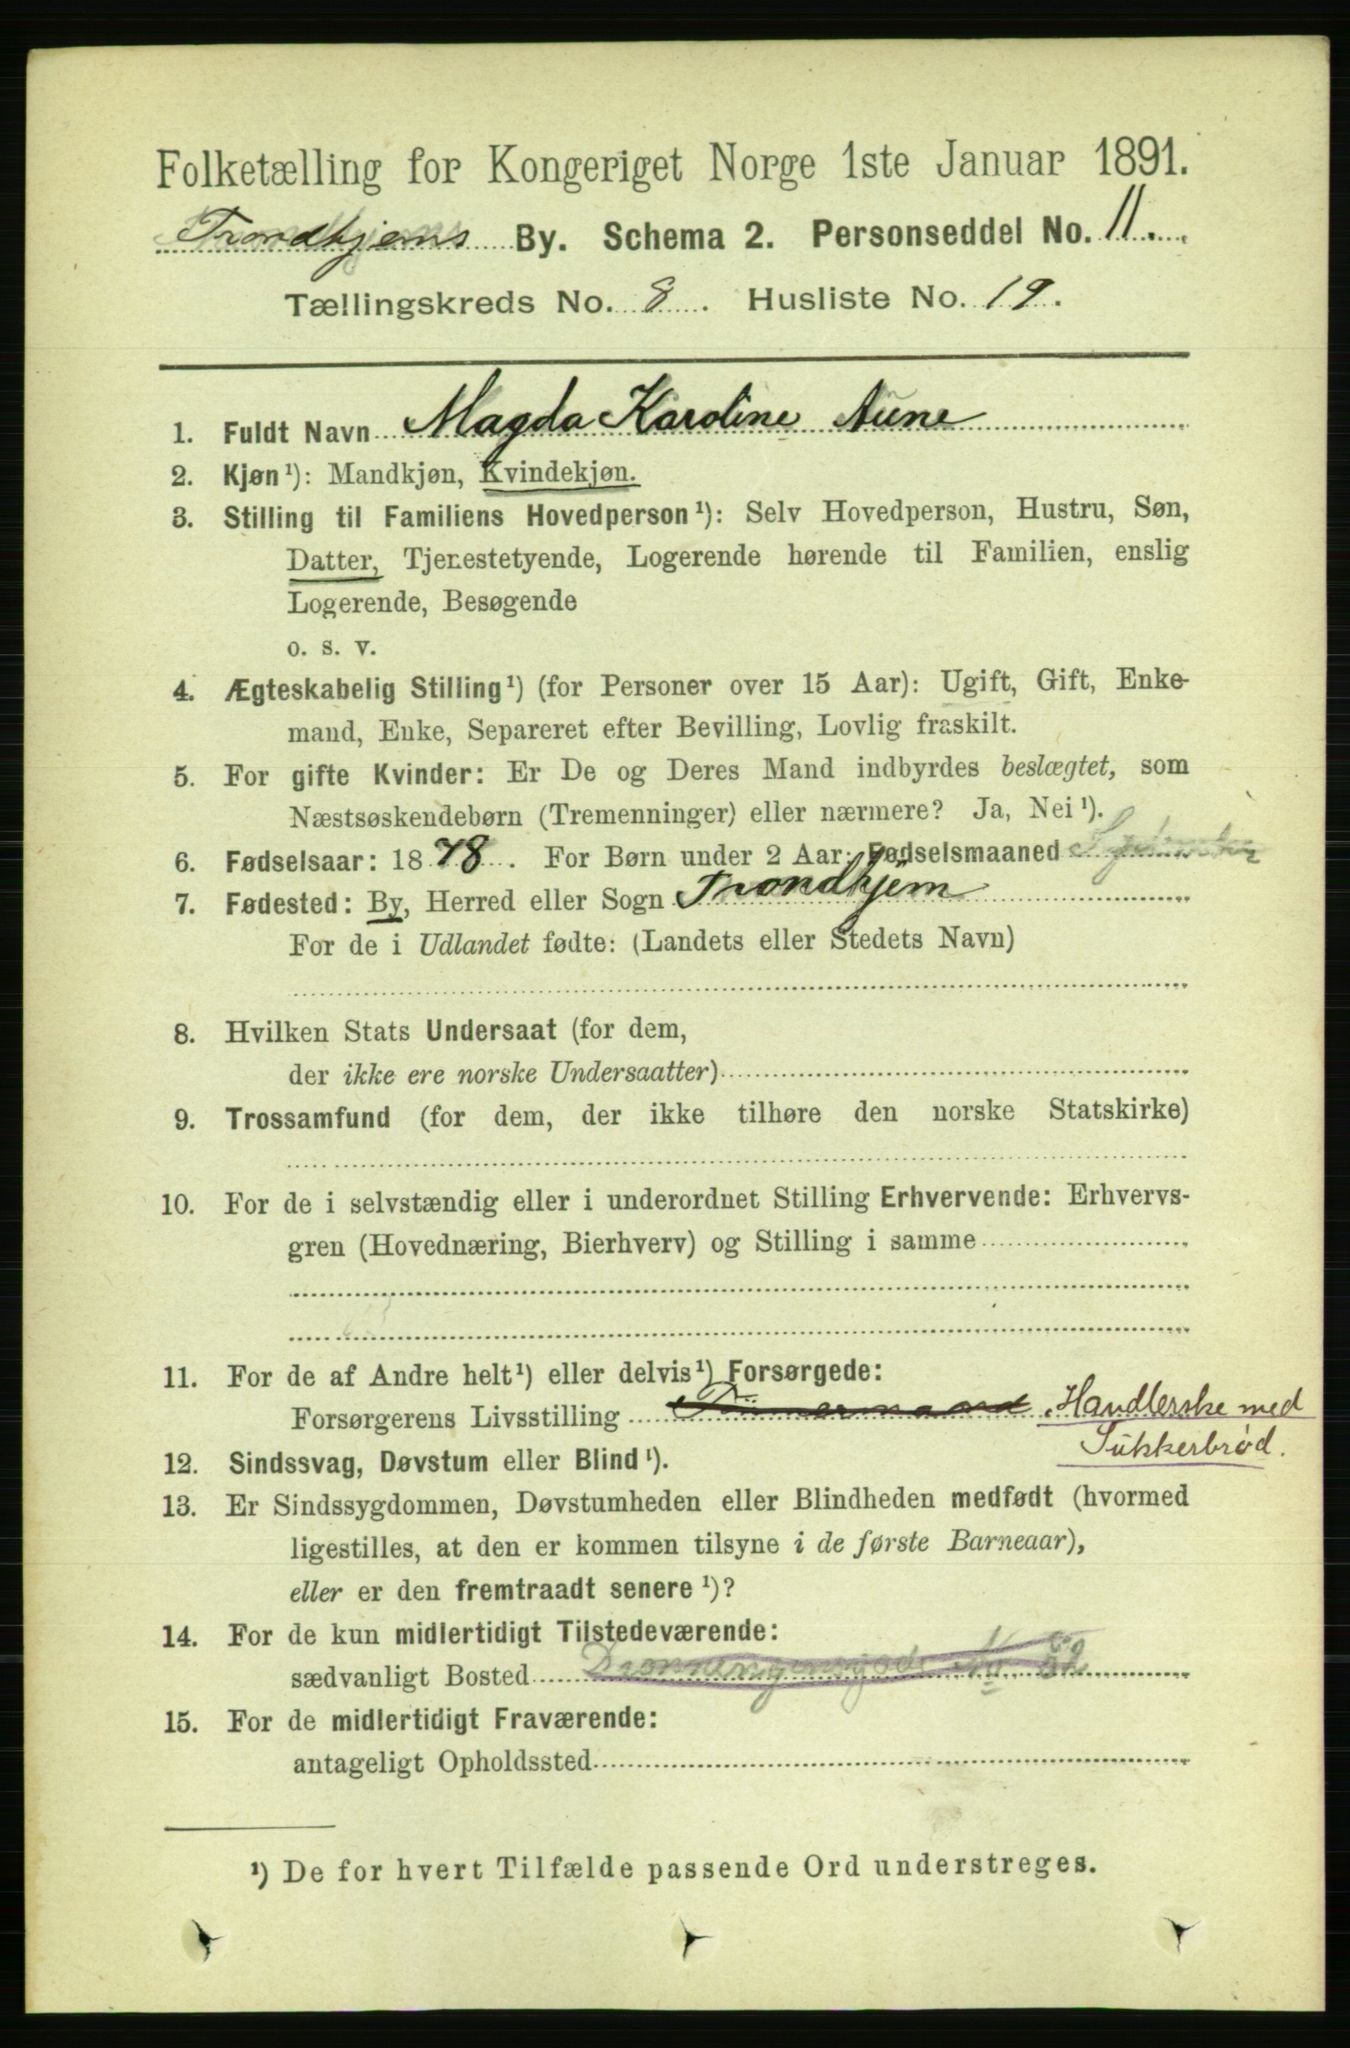 Folketælling for Kongeriget Norge 1ste Januar 1891.
Trondhjems By. Schema 2. Personseddel No. 11.
Tællingskreds No. 8. Husliste No. 19.
1. Fuldt Navn Magda Karoline Aune
2. Kjøn¹): Mandkjøn, Kvindekjøn.
3. Stilling til Familiens Hovedperson¹): Selv Hovedperson, Hustru, Søn,
Datter, Tjenestetyende, Logerende hørende til Familien, enslig
Logerende, Besøgende
o. s. v.
4. Ægteskabelig Stilling¹) (for Personer over 15 Aar): Ugift, Gift, Enke-
mand, Enke, Separeret efter Bevilling, Lovlig fraskilt.
5. For gifte Kvinder: Er De og Deres Mand indbyrdes beslægtet, som
Næstsøskendebørn (Tremenninger) eller nærmere? Ja, Nei¹).
6. Fødselsaar: 1878. For Børn under 2 Aar: Fødselsmaaned September
7. Fødested: By, Herred eller Sogn Trondhjem
For de i Udlandet fødte: (Landets eller Stedets Navn)
8. Hvilken Stats Undersaat (for dem,
der ikke ere norske Undersaatter)
9. Trossamfund (for dem, der ikke tilhøre den norske Statskirke)
10. For de i selvstændig eller i underordnet Stilling Erhvervende: Erhvervs-
gren (Hovednæring, Bierhverv) og Stilling i samme
11. For de af Andre helt¹) eller delvis¹) Forsørgede:
Forsørgerens Livsstilling Tømmermand Handlerske med
Sukkerbrød.
12. Sindssvag, Døvstum eller Blind¹).
13. Er Sindssygdommen, Døvstumheden eller Blindheden medfødt (hvormed
ligestilles, at den er kommen tilsyne i de første Barneaar),
eller er den fremtraadt senere¹)?
14. For de kun midlertidigt Tilstedeværende:
sædvanligt Bosted No 52
15. For de midlertidigt Fraværende:
antageligt Opholdssted
¹) De for hvert Tilfælde passende Ord understreges.